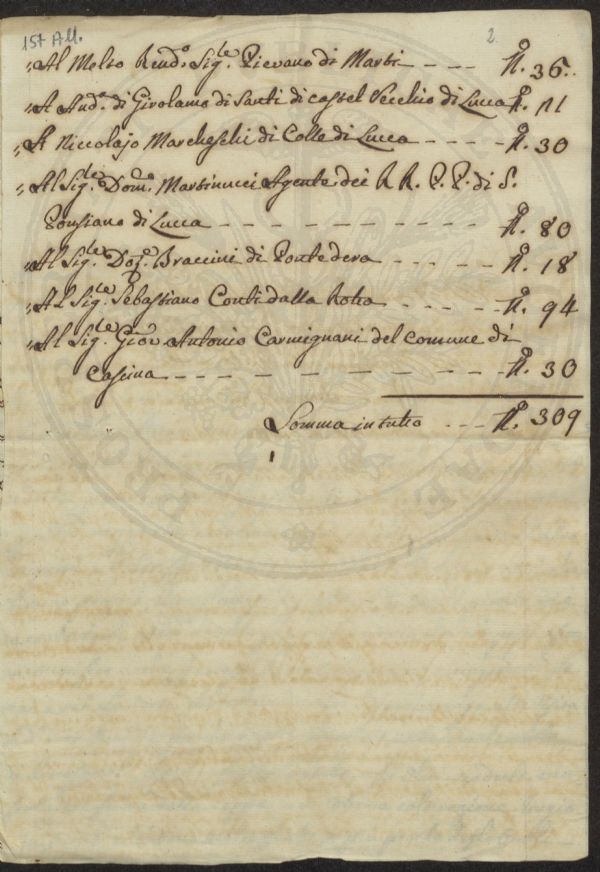 157 All.
2
„Al Molto Rend.º Sig.le Pievano di Marti - - - - N.º 36..
„A And.ª di Girolamo di Santi di castel Vecchio di Lucca N.º 11
„A Niccolajo Marcheschi di Colle di Lucca - - - - - N.º 30
„Al Sig.le Dom.co Martinucci Agente dei R R. P. P. di S.
Ponsiano di Lucca - - - - - - - - - - - N.º 80
„Al Sig.le Braccini di Pontedera - - - - - N.º 18
„Al Sig.le Sebastiano Conti dalla Rotta - - - - N.º 94
„Al Sig.le Giov. Antonio Carmignani del comune di
Cascina - - - - - - - - - - - - N.º 30
Somma in tutto - - - N.º 309